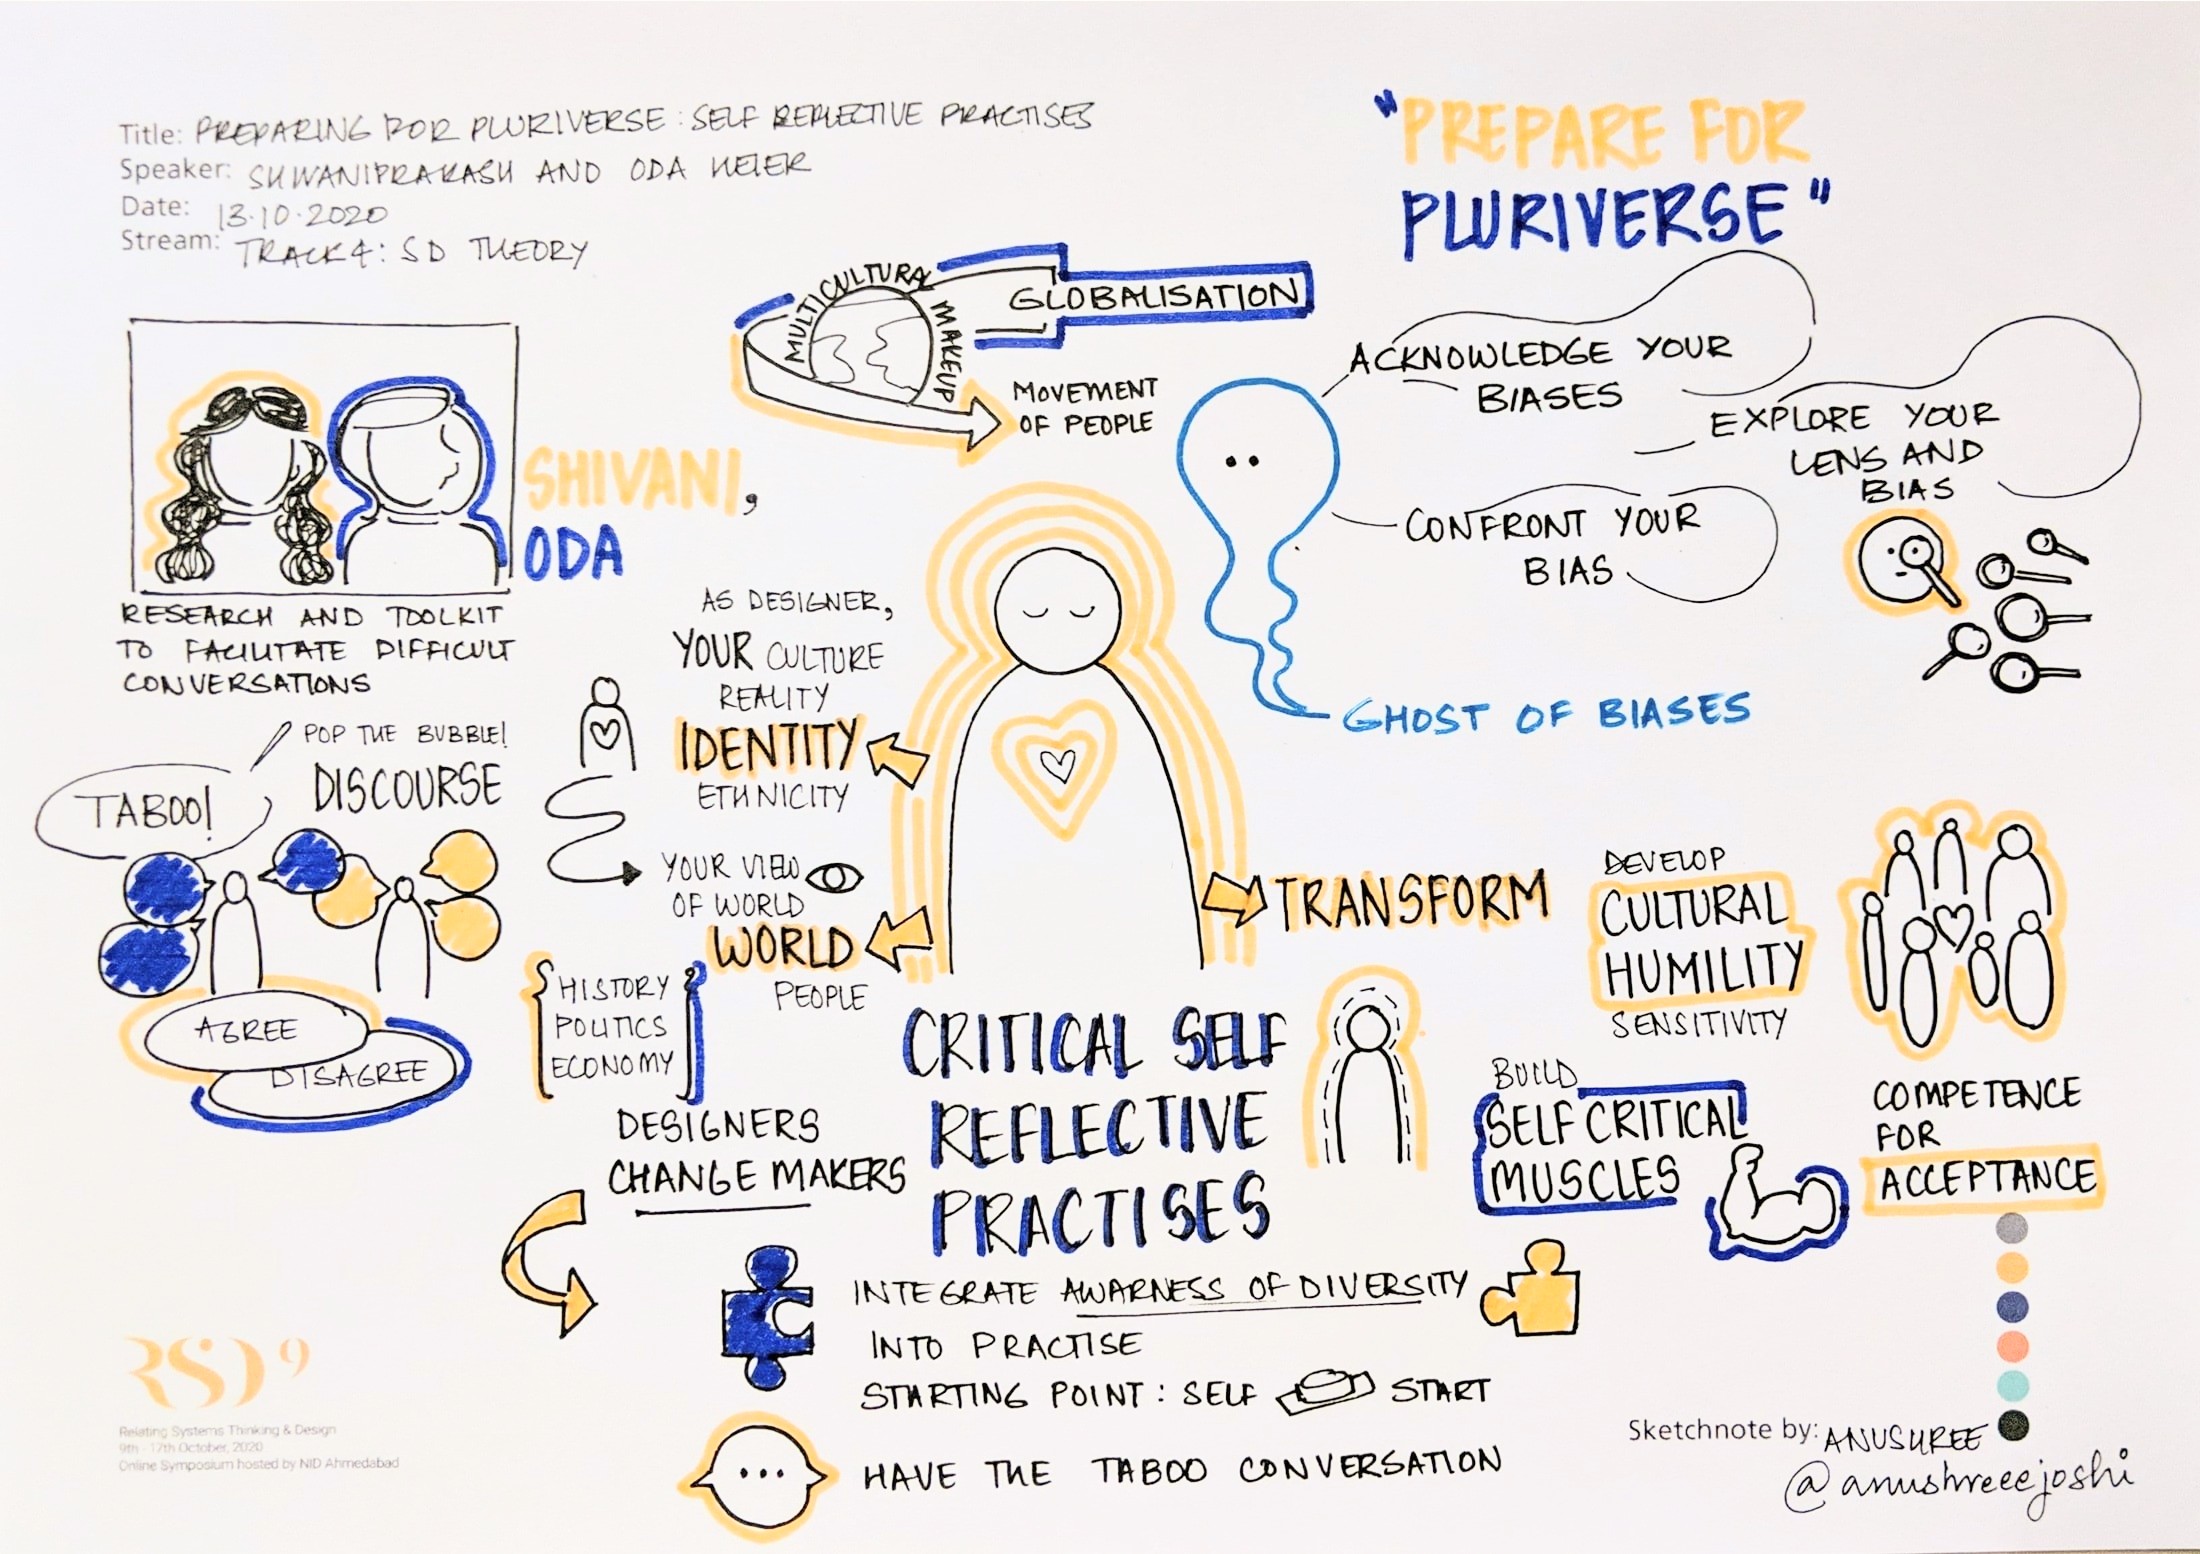 Title: PREPARING FOR PLURIVERSE: SELF REFLECTIVE PRACTISES
Speaker: SHWANIPRAKASH AND ODA HEIER
Date: 13.10.2020
Stream: TRACK 4: SD THEORY
"PREPARE FOR
PLURIVERSE"
MULTICULTURAL
MAKEUP
GLOBALISATION
MOVEMENT
OF PEOPLE
ACKNOWLEDGE YOUR
BIASES
EXPLORE YOUR
LENS AND
BIAS
CONFRONT YOUR
BIAS
GHOST OF BIASES
SHIVANI,
ODA
RESEARCH AND TOOLKIT
TO FACILITATE DIFFICULT
CONVERSATIONS
POP THE BUBBLE!
DISCOURSE
TABOO!
AGREE
DISAGREE
AS DESIGNER,
YOUR CULTURE
REALITY
IDENTITY
ETHNICITY
YOUR VIEW
OF WORLD
WORLD
PEOPLE
HISTORY
POLITICS
ECONOMY
DESIGNERS
CHANGE MAKERS
TRANSFORM
DEVELOP
CULTURAL
HUMILITY
SENSITIVITY
CRITICAL SELF
REFLECTIVE
PRACTISES
BUILD
SELF CRITICAL
MUSCLES
COMPETENCE
FOR
ACCEPTANCE
INTEGRATE AWARNESS OF DIVERSITY
INTO PRACTISE
STARTING POINT: SELF START
HAVE THE TABOO CONVERSATION
RSD9
Relating Systems Thinking & Design
9th - 17th October, 2020
Online Symposium hosted by NID Ahmedabad
Sketchnote by: ANUSHREE
@anushreeejoshi